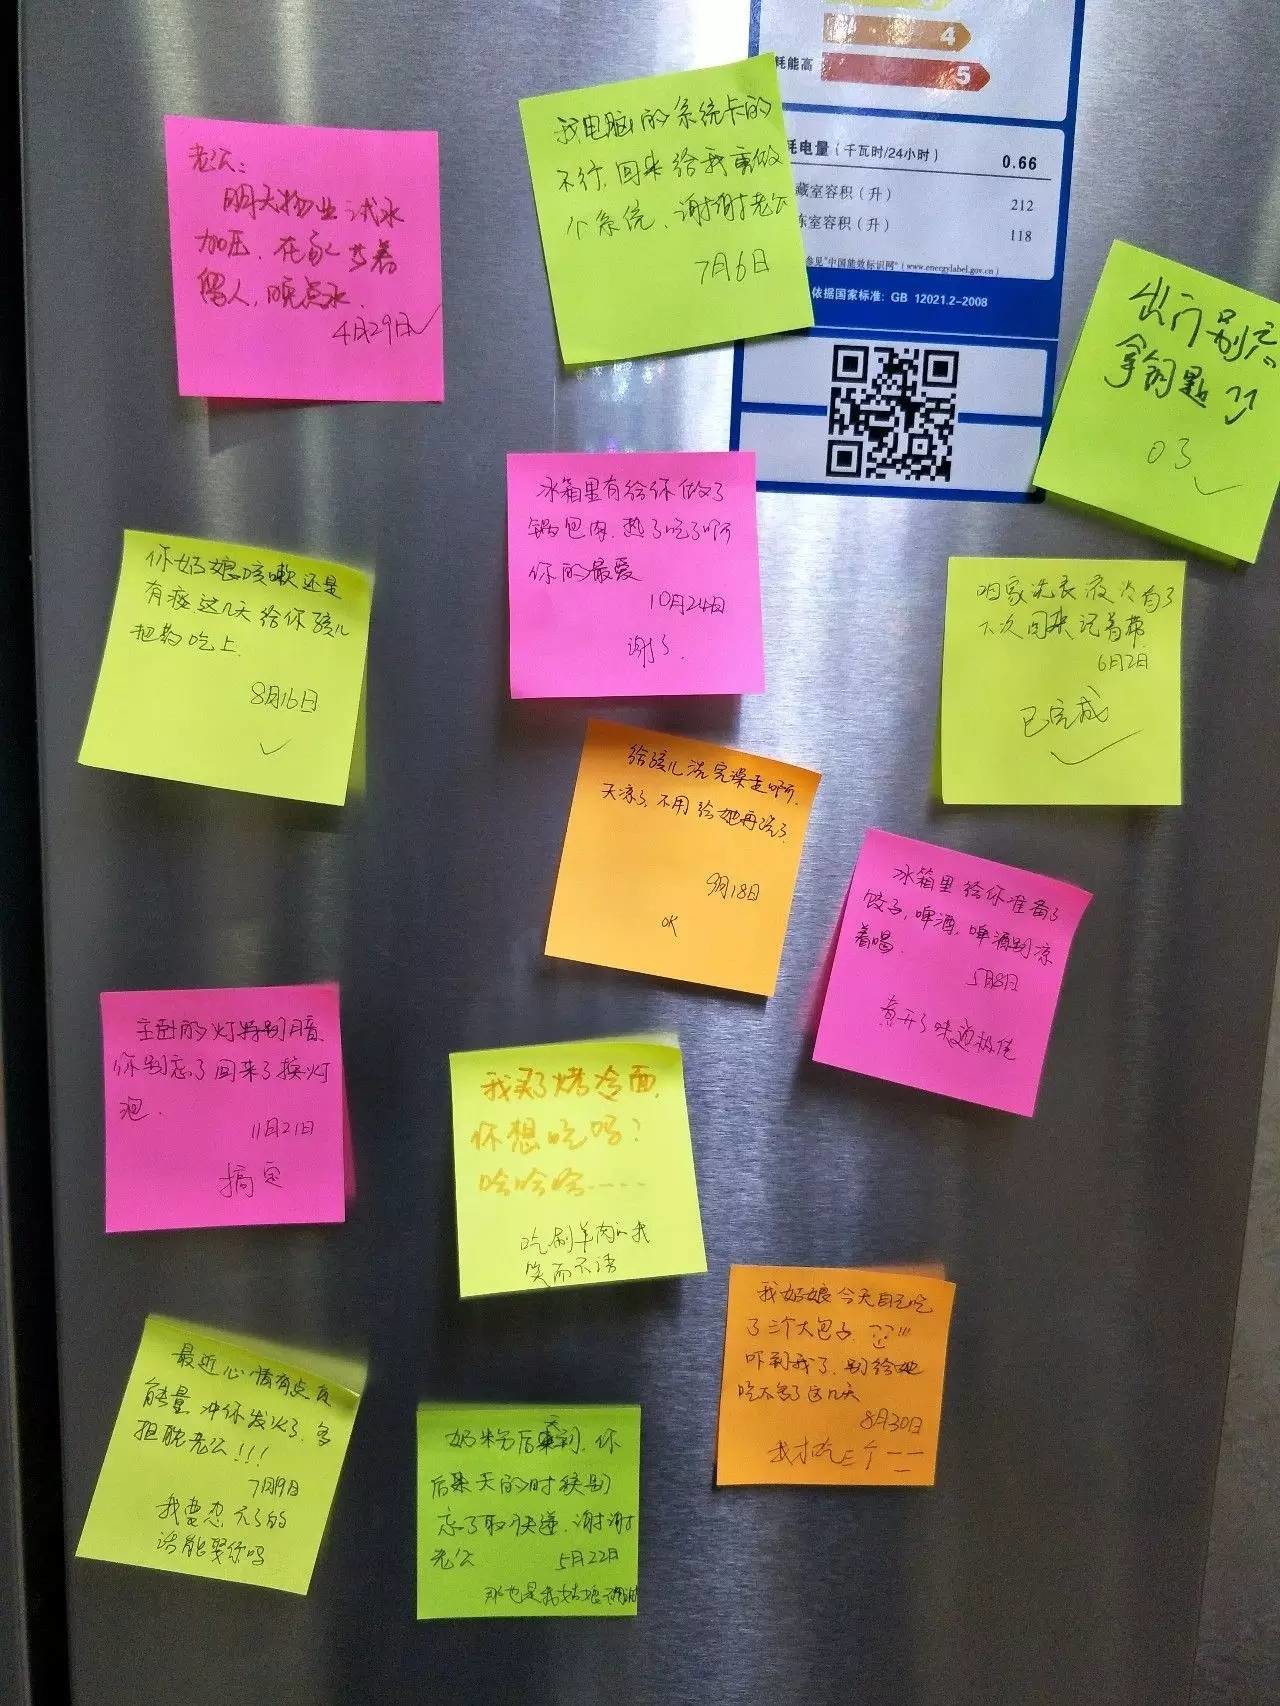 3
4
耗能高
5
耗电量（千瓦时/24小时）
0.66
藏室容积（升）
212
冻室容积（升）
118
参见"中国能效标识网"（www.energylabel.gov.cn）
依据国家标准：GB 12021.2-2008
老公：
明天物业试水
加压，在家
留人，
4月29日
我电脑的系统卡的
不行，回来给我重做
个系统，谢谢老公
7月6日
出门别忘
拿钥匙
冰箱里有给你做了
锅包肉，热了吃了啊
你的最爱
10月24日
谢了.
你姑娘咳嗽还是
有痰这几天给你孩儿
把药吃上.
8月16日
咱家洗衣液没有了
下次回来记着带
6月2日
已完成
给孩儿洗完澡走啊.
天凉了,不用给她再洗了.
9月18日
OK
冰箱里给你准备了
饺子,啤酒,啤酒别凉
着喝.
5月8日
煮开了味道极佳
主卧的灯特别暗
你别忘了回来了换灯
泡.
11月21日
搞定
我买了烤冷面,
你想吃吗?
哈哈哈……
吃涮羊肉的我
笑而不语
我姑娘今天自己吃
了三个大包子
吓到我了.别给她
吃太多了这几天
8月30日
我才吃三个
最近心情有点负
能量,冲你发火了.多
担待老公!!!
7月19日
我要忍不了的
话能娶你吗
奶粉后天到.你
后天的时候别
忘了取快递.谢谢
老公
5月22日
那也是我姑娘